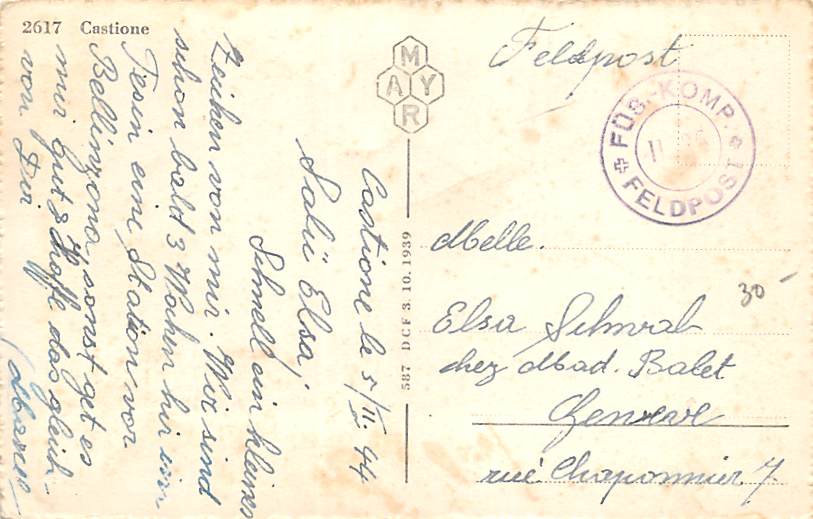 2617 Castione
Castione le 5/II. 44
Salü Elsa,
Schnell ein kleines
Zeichen von mir. Wir sind
schon bald 3 Wochen hir im
Tesin eine Station vor
Bellinzona, sonst get es
mir gut & Hoffe das gleich
von Dir
MAYR
587 DCF 3.10.1939
Feldpost
FÜS.-KOMP.
II
FELDPOST
Melle.
Elsa Schwab
chez Mad. Balet
Geneve
rue Chaponnier 7.
30 -